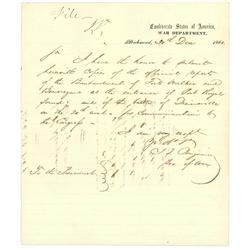 File
Confederate States of America,
WAR DEPARTMENT,
Richmond, 30th Dec 1861
Sir
I have the honor to submit
herewith Copies of the official reports
of the Bombardment of Forts Walker and
Beauregard at the entrance of Port Royal
Sound, and of the battle of Drainsville
on the 20th for Communication to
the Congress
I am very respt
J. P. Benjamin
Sec of War
To the President